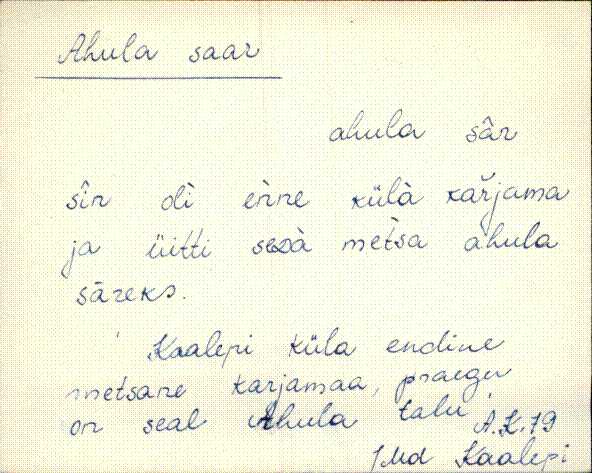 Ahula saar
ahula sâr
sîn oli ènne külà kařjama
ja üitti sedà metsa ahula
sāreks.
Kaalepi küla endine
metsane karjamaa, praegu
on seal Ahula talu
A.K.79
JMd Kaalepi